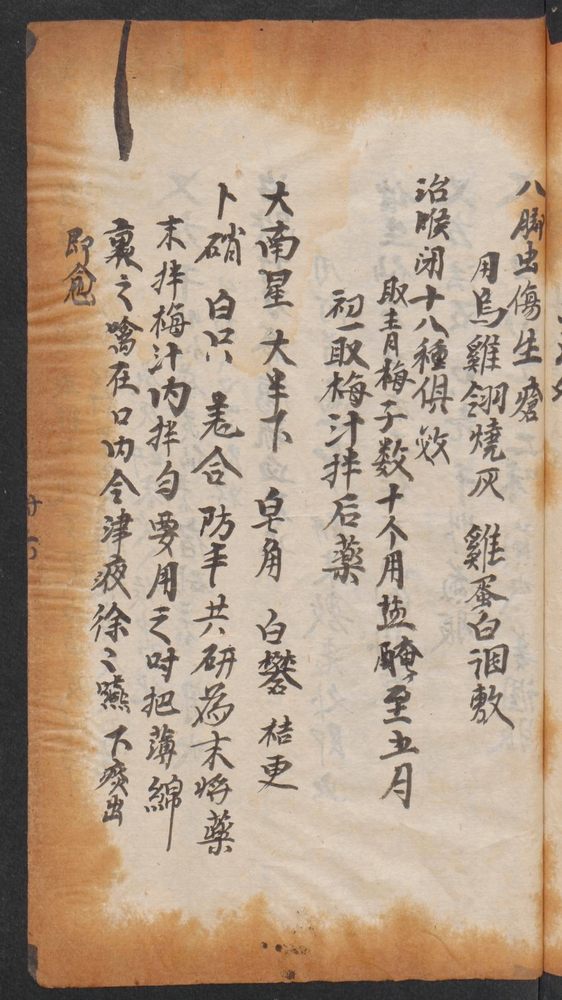 八脚虫傷生瘡
用烏雞翎燒灰　雞蛋白調敷
治喉闭十八種俱效
取青梅子数十个用盐腌至五月
初一取梅汁拌后薬
大南星　大半下　皂角　白礬　桔更
卜硝　白只　羗合　防丰　共研為末將薬
末拌梅汁内拌匀要用之时把薄綿
裏之噙在口内令津液徐〻嚥下痰出
即愈